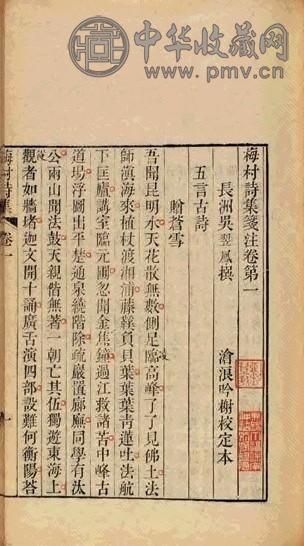 中华收藏网
www.pmv.cn
梅村詩集箋注卷第一
長洲吳翌鳳撰 滄浪吟榭校定本
五言古詩
贈蒼雪
吾聞昆明水天花散無數側足臨高峰了了見佛土法
師滇海來植杖渡湘浦藤鞵負貝葉葉葉青蓮吐法航
下匡廬講室臨元圃忽聞金焦鐘過江救諸苦中峰古
道場浮圖出平楚通泉繞階除疏巖置廊廡同學有汰
公兩山聞法鼓天親偕無著一朝亡其伍獨遊東海上
觀者如牆堵迦文開十誦廣舌演四部設難何衡陽答
梅村詩集 卷一 一